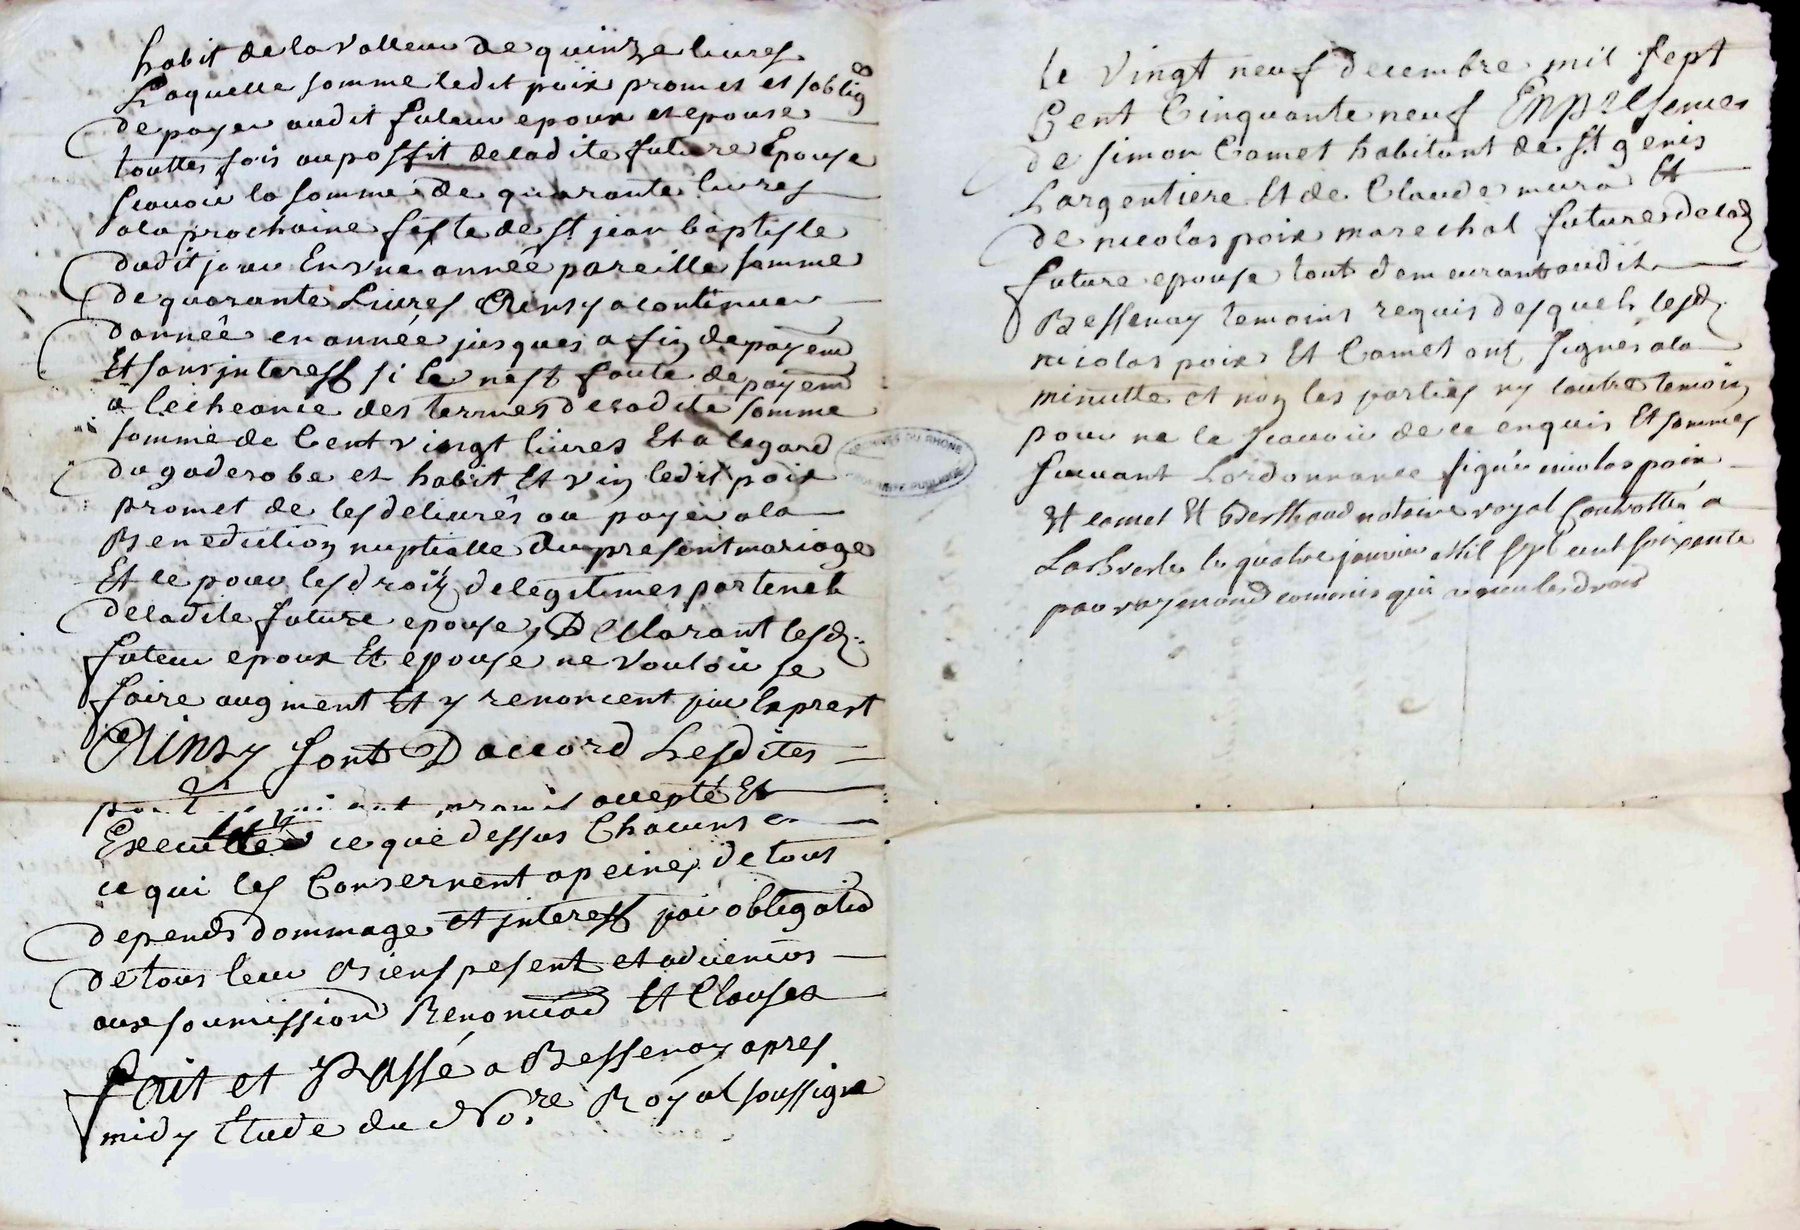 habit de la valleur de quinze livres
Laquelle somme ledit poix promet et soblig
de payer audit futeur epoux et epouse
touttes fois au proffit de ladite future Epouse
scavoir la somme de quarante livres
a la prochaine feste de st jean baptiste
dudit jour En une année pareille somme
de quarante Livres Ainsy a continuer
dannée en année jusques a fin de payemt
Et sans interest si ce nest faute de payemt
a lecheance des termes de ladite somme
somme de Cent vingt livres Et a legard
du gaderobe et habit Et vin ledit poix
promet de les delivrés ou payer a la
Benediction nuptialle du present mariage
Et ce pour les droitz de legitimes paternels
de ladite future epouse, Declarant lesd.
futeur epoux Et epouse ne vouloir se
faire augment Et y renoncent par le prest
Ainsy sont D'accord Lesdites
qui ont promis accepté Et
Executter ce que dessus Chacuns en
ce qui les Consernent a peines de tous
depends dommage et interest par obligatio
de tous leur Biens pesent et advenirs
aux soumission Renonciaon Et Clauses
fait et Passé a Bessenay apres
midy Etude du No.re Royal soussigne
le vingt neuf decembre mil sept
Cent Cinquante neuf En presences
de simon Comet habitant de st genis
Largentiere Et de Claude mura Et
de nicolas poix marechal future de lad
future epouse tout demeurant audit
Bessenay temoins requis desquels lesd.
nicolas poix Et Comet ont signés a la
minutte et non les parties ny lautre temoin
pour ne le scavoir de ce enquis Et sommes
suivant Lordonnance signé nicolas poix
et comet Et Berthaud notaire royal Controllé a
Larbresle le quatre janvier Mil sept cent soixante
par raymond commis qui a receu les droits